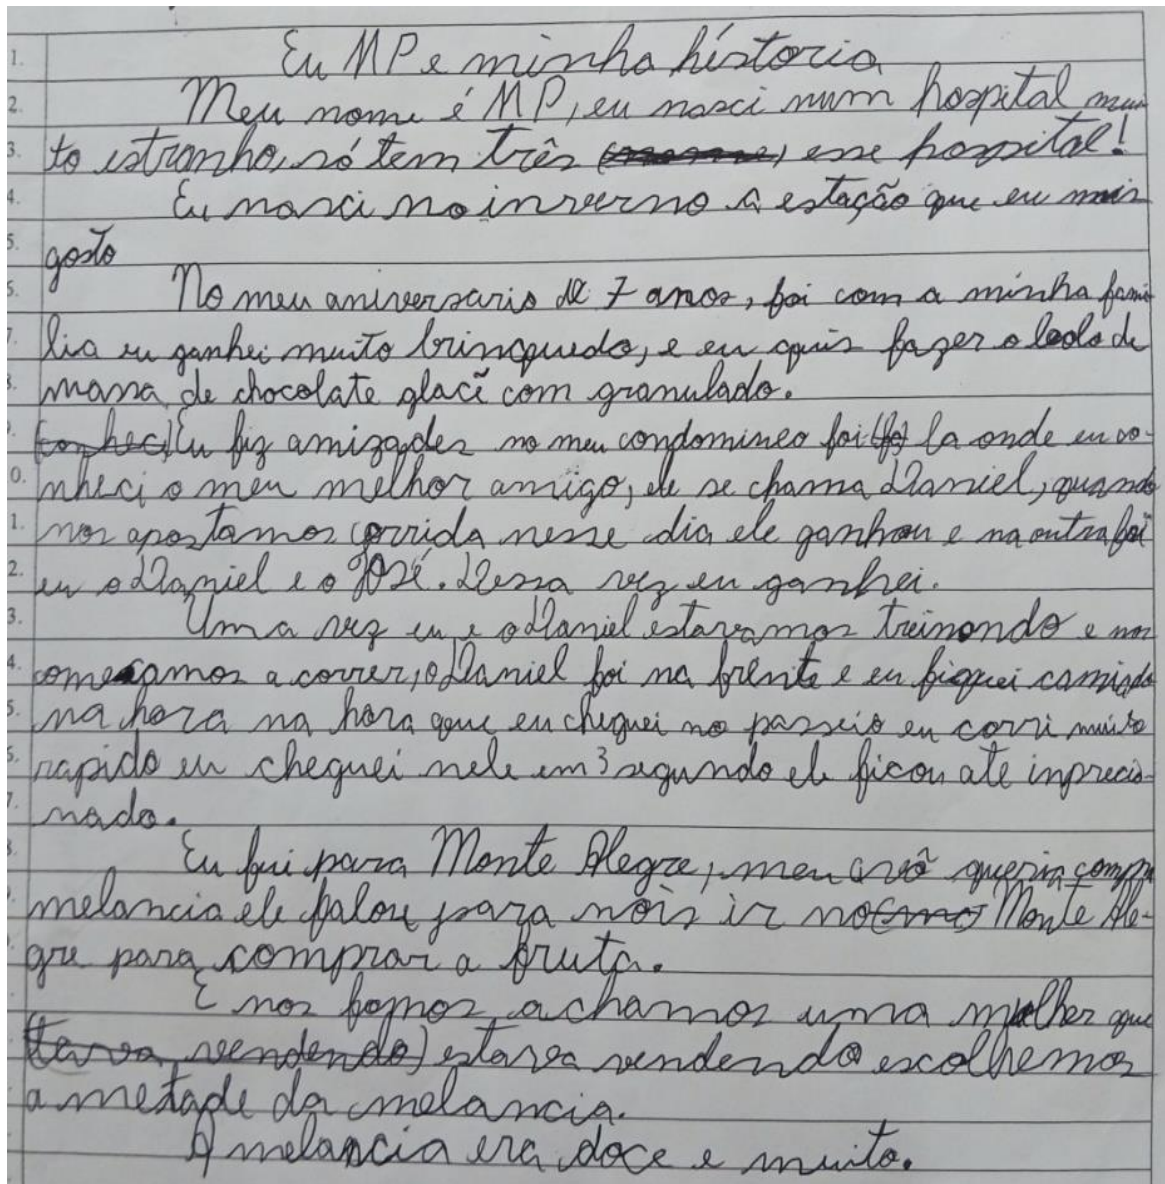 1. Eu MP e minha história
2. Meu nome é MP, eu nasci num hospital mui
3. to estranho, só tem três esse hospital!
4. Eu nasci no inverno a estação que eu mais
5. gosto
6. No meu aniversario de 7 anos, foi com a minha fami
7. lia eu ganhei muito brinquedo, e eu quis fazer o bolo de
8. massa de chocolate glacê com granulado.
9. (conheci) Eu fiz amizades no meu condomineo foi la onde eu co-
10. nheci o meu melhor amigo, ele se chama Daniel, quando
11. nos apostamos corrida nesse dia ele ganhou e na outra foi
12. eu o Daniel e o José. Dessa vez eu ganhei.
13. Uma vez eu e o Daniel estavamos treinondo e nos
14. começamos a correr, o Daniel foi na frente e eu fiquei cansado
15. na hora na hora que eu cheguei no passeio eu corri muito
rapido eu cheguei nele em 3 segundo ele ficou ate inprecio-
nado.
Eu fui para Monte Alegre, meu avô queria compra
melancia ele falou para nóis ir no Monte Ale-
gre para comprar a fruta.
E nos fomos achamos uma mulher que
(tava vendendo) estava vendendo escolhemos
a metade da melancia.
A melancia era doce e muito.